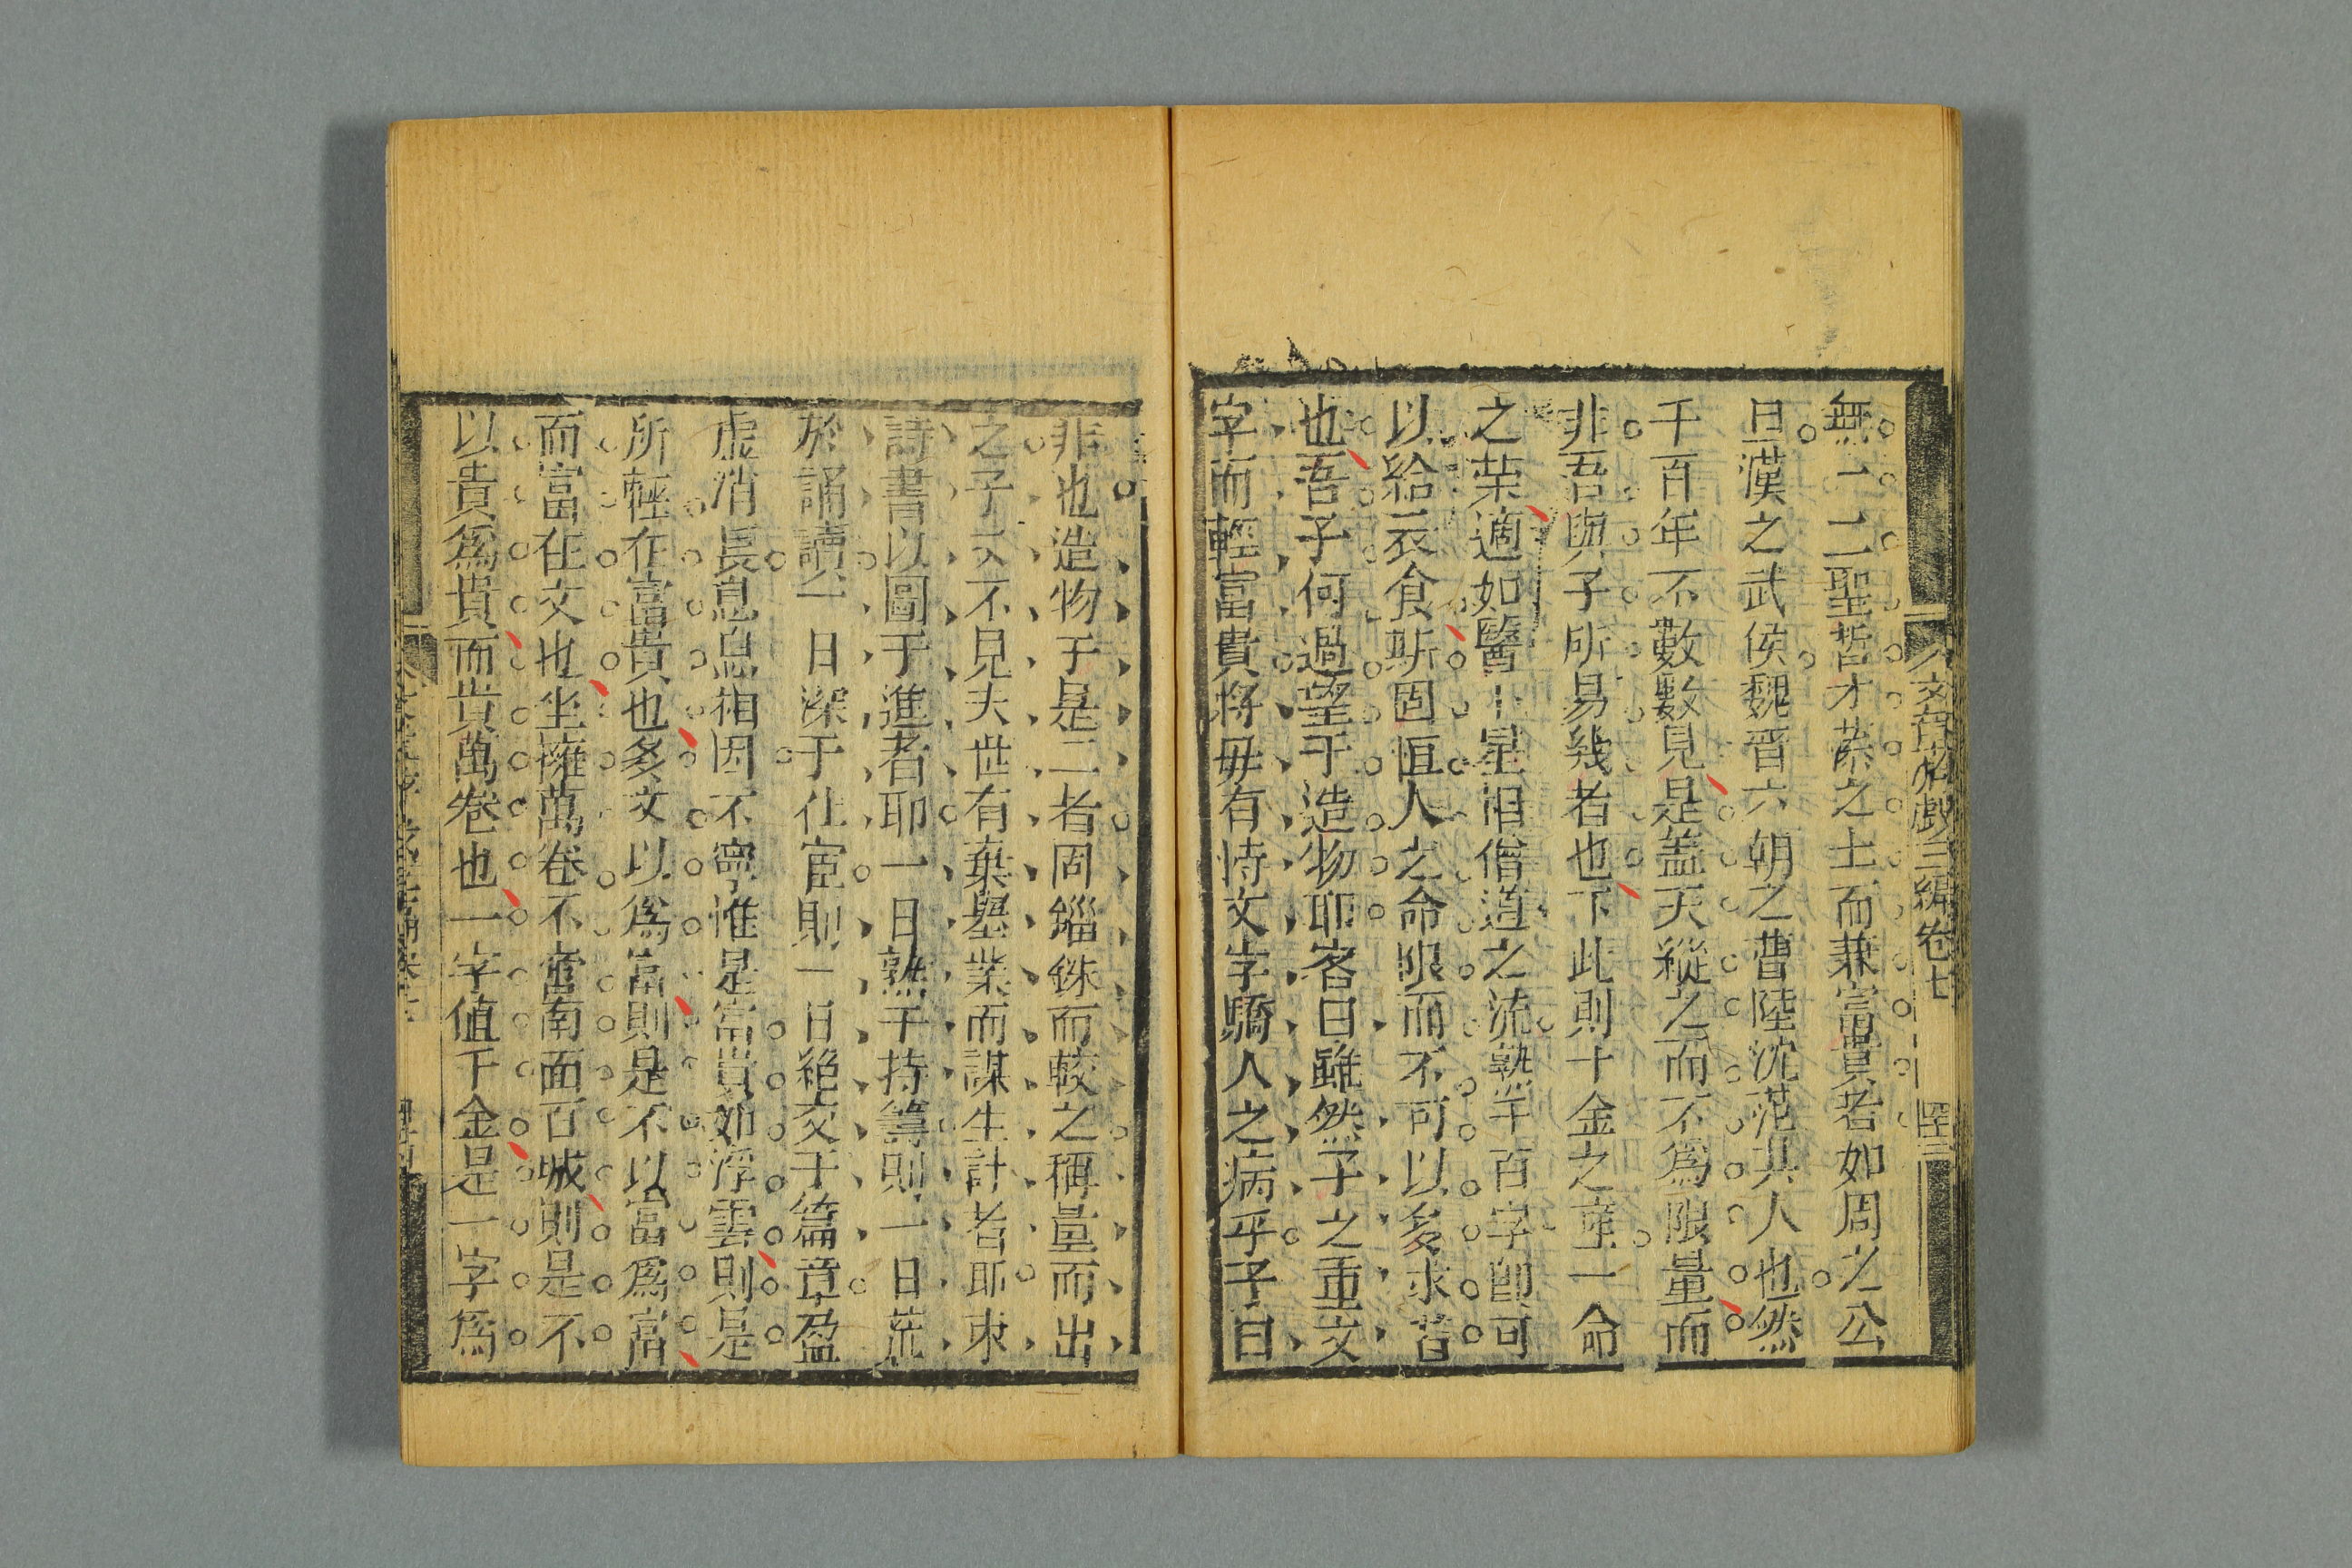 文章游戲三編卷七
無一二聖哲才藻之士而兼富貴者如周之公
旦漢之武侯魏晋六朝之曹陸沈范其人也然
千百年不數數見是盖天縱之而不為限量而
非吾與子所易幾者也下此則十金之產一命
之荣適如醫卜星相僧道之流熟千百字卽可
以給衣食斯固恒人之命限而不可以多求者
也吾子何過望于造物耶客曰雖然子之重文
字而輕富貴將毋有恃文字驕人之病乎子曰
非也造物于是二者固錙銖而較之稱量而出
之子又不見夫世有棄舉業而謀生計者耶束
詩書以圖于進者耶一日熟于持籌則一日荒
於誦讀一日深于仕宦則一日絕交于篇章盈
虛消長息息相因不寧惟是富貴如浮雲則是
所輕在富貴也多文以為富則是不以富為富
而富在文也坐擁萬卷不啻南面百城則是不
以貴為貴而貴萬卷也一字值千金是一字為